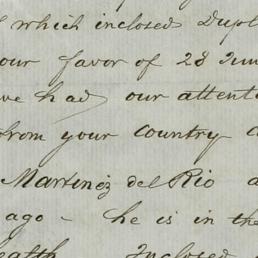 which inclosed Dupl
our favor of 28 June
ve had our attent
from your Country a
Martinez del Rio a
ago - he is in the
ealth Inclosed